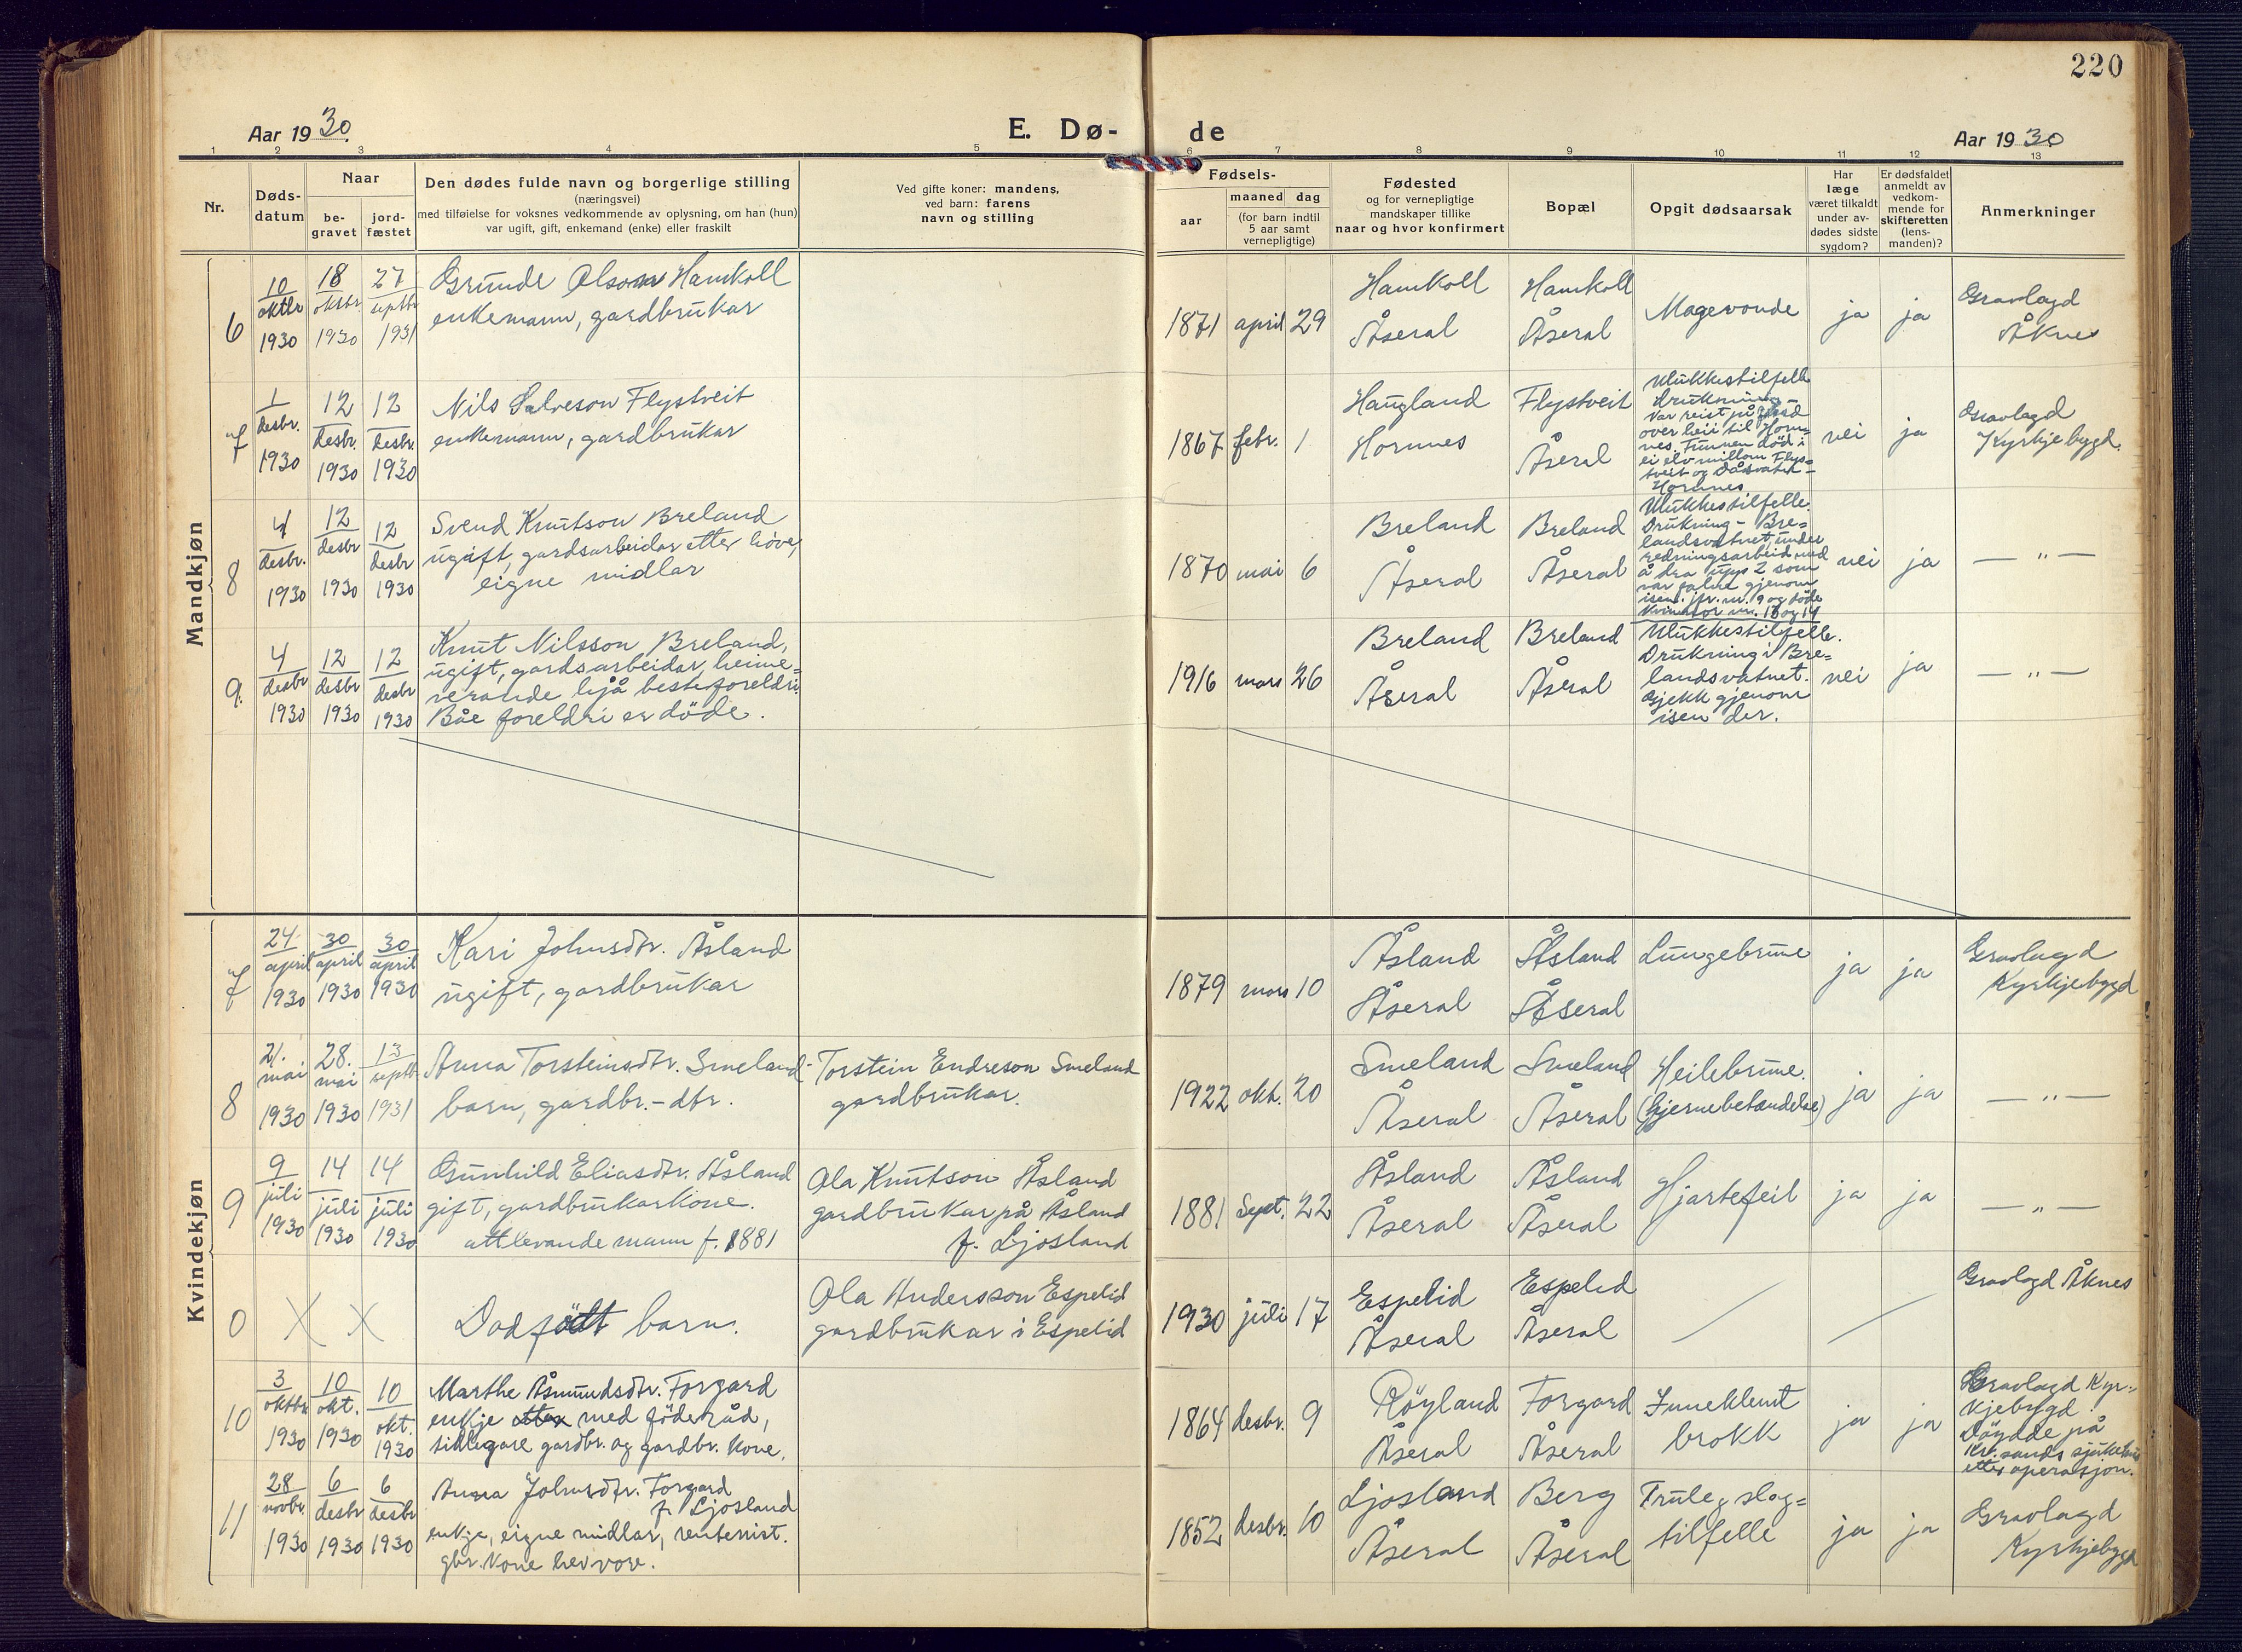 220
Aar 1930.
E. Dø-
de
Aar 1930
1 2 3 4 5 6 7 8 9 10 11 12 13
Nr.
Døds-
datum
Naar
be-
gravet
jord-
fæstet
Den dødes fulde navn og borgerlige stilling
(næringsvei)
med tilføielse for voksnes vedkommende av oplysning, om han (hun)
var ugift, gift, enkemand (enke) eller fraskilt
Ved gifte koner: mandens,
ved barn: farens
navn og stilling
Fødsels-
aar
maaned dag
(for barn indtil
5 aar samt
vernepligtige)
Fødested
og for vernepligtige
mandskaper tillike
naar og hvor konfirmert
Bopæl
Opgit dødsaarsak
Har
læge
været tilkaldt
under av-
dødes sidste
sygdom?
Er dødsfaldet
anmeldt av
vedkom-
mende for
skifteretten
(lens-
manden)?
Anmerkninger
Mandkjøn
6
10
oktbr
1930
18
oktbr.
1930
27
septbr
1931
Grunde Olsson Hamkoll
enkemann, gardbrukar
1871 april 29
Hamkoll
Åseral
Hamkoll
Åseral
Magevonde
ja
ja
Gravlagd
Åknes
7
1
desbr.
1930
12
desbr.
1930
12
desbr.
1930
Nils Salveson Flystveit
enkemann, gardbrukar
1867 febr. 1
Haugland
Hornnes
Flystveit
Åseral
Ulukkestilfelle
drukning -
Var reist på
over heii til Horn-
nes. Funnen död i
ei elv millom Flys-
tveit og Dåsvatn -
Hornnes
nei
ja
Gravlagd
Kyrkjebygd.
8
4
desbr.
1930
12
desbr
1930
12
desbr
1930
Svend Knutson Breland
ugift, gardsarbeidar etter höve,
eigne midlar
1870 mai 6
Breland
Åseral
Breland
Åseral
Ulukkestilfelle.
Drukning - Bre=
landsvatnet, under
redningsarbeid med
å dra upp 2 som
var falne gjenom
isen. jfr. nr. 9 og döde
kvinnor nr. 13 og 14
nei
ja
— " —
9.
4
desbr
1930
12
desbr
1930
12
desbr
1930
Knut Nilsson Breland,
ugift, gardsarbeidar, heime=
verande hjå besteforeldri.
Båe foreldri er döde.
1916 mars 26
Breland
Åseral
Breland
Åseral
Ulukkestilfelle.
Drukning i Bre=
landsvatnet.
Gjekk gjenom
isen der.
nei
ja
— " —
Kvindekjøn
7
24
april
1930
30
april
1930
30
april
1930
Kari Johnsdtr. Åsland
ugift, gardbrukar
1879 mars 10
Åsland
Åseral
Åsland
Åseral
Lungebrune
ja
ja
Gravlagd
Kyrkjebygd
8
21.
mai
1930
28.
mai
1930
13
septbr
1931
Anna Torsteinsdtr. Smeland
barn, gardbr.-dtr.
Torstein Endreson Smeland
gardbrukar.
1922 okt. 20
Smeland
Åseral
Smeland
Åseral
Heilebrune.
(Hjernebetændelse)
ja
ja
— " —
9
9
juli
1930
14
juli
1930
14
juli
1930
Gunhild Eliasdtr. Åsland
gift, gardbrukarkone.
attlevande mann f. 1881
Ola Knutson Åsland
gardbrukar på Åsland
f. Ljosland
1881 Sept. 22
Åsland
Åseral
Åsland
Åseral
Hjartefeil
ja
ja
— " —
0
X X
Dodfödt barn.
Ola Andersson Espelid
gardbrukar i Espelid
1930 juli 17
Espelid
Åseral
Espelid
Åseral
Gravlagd Åknes
10
3
oktbr
1930
10
okt.
1930
10
okt.
1930
Marthe Åsmundsdtr. Forgard
enkje med föderåd,
tidlegare gardbr. og gardbr. kone.
1864 desbr. 9
Röyland
Åseral
Forgard
Åseral
Inneklemt
brokk
ja
ja
Gravlagd Kyr=
kjebygd.
Döydde på
Kr.sands sjukehus
etter operasjon.
11
28
novbr.
1930
6
desbr
1930
6
desbr
1930
Anna Johnsdtr. Forgard
f. Ljosland
enkje, eigne midlar, rentenist.
gbr. kone hev vore.
1852 desbr. 10
Ljosland
Åseral
Berg
Åseral
Truleg slag=
tilfelle
ja
ja
Gravlagd
Kyrkjebygd